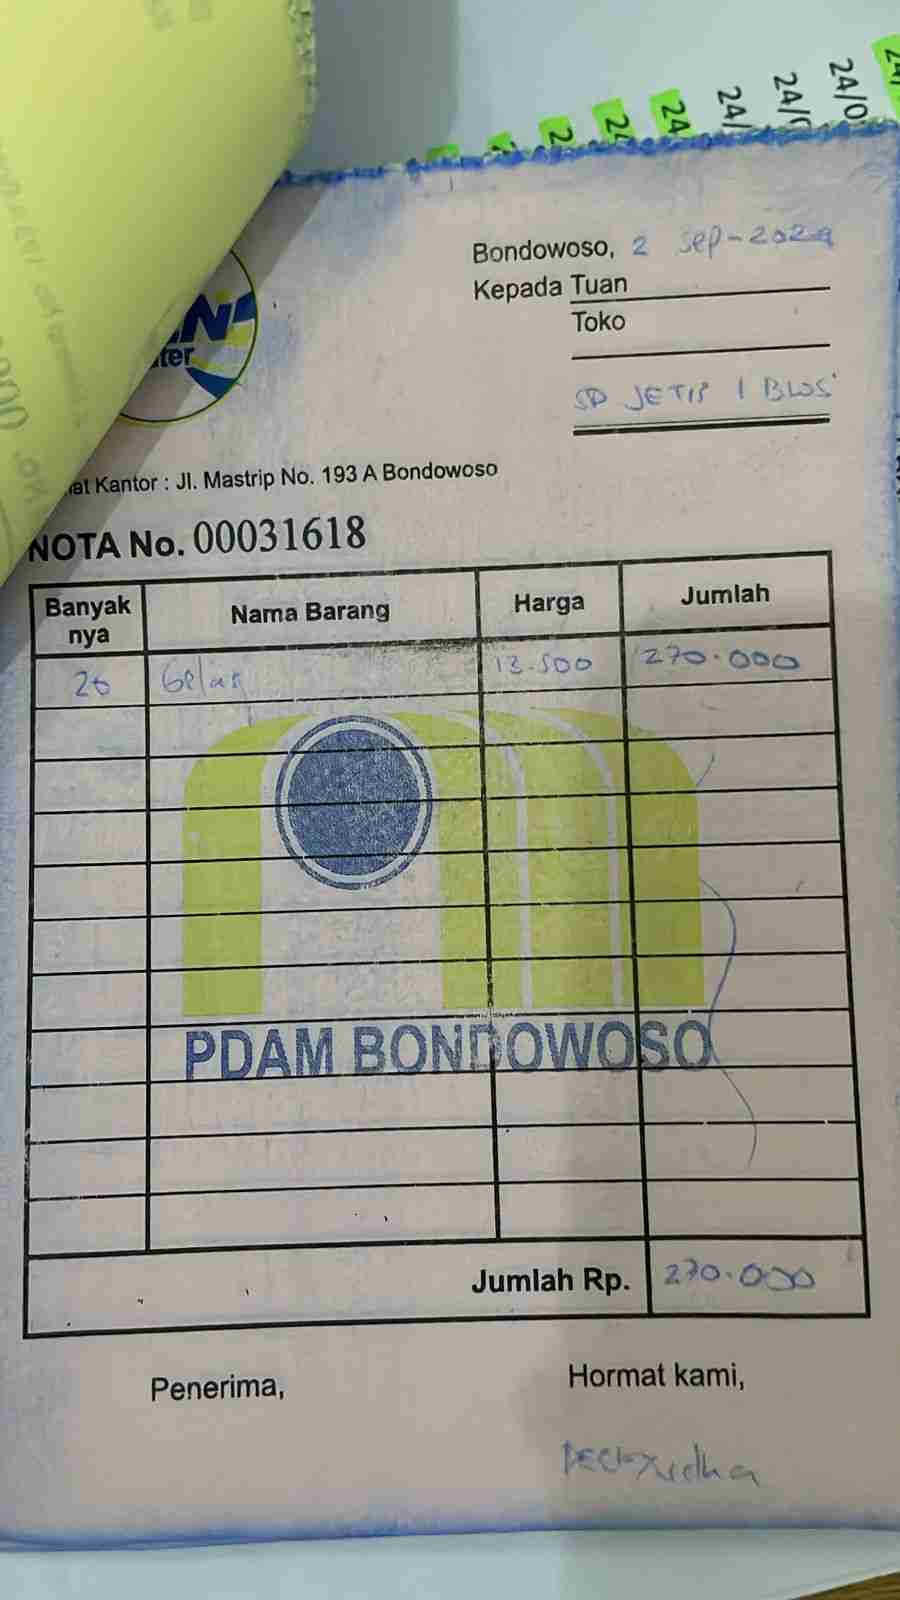 24/
24/0
24/0
24/
24
Bondowoso, 2 Sep-2024
Kepada Tuan
Toko
SD JETIS 1 BWS
ter
at Kantor : Jl. Mastrip No. 193 A Bondowoso
NOTA No. 00031618
Banyak nya Nama Barang Harga Jumlah
20 Gelas 13.500 270.000
PDAM BONDOWOSO
Jumlah Rp. 270.000
Penerima, Hormat kami,